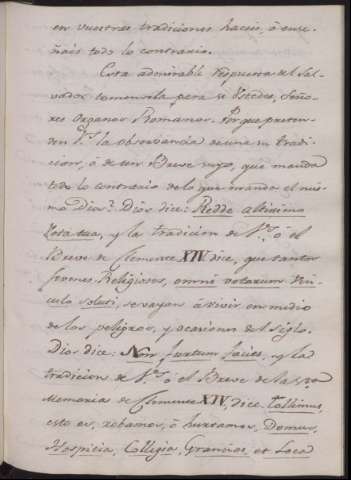 en vuestras tradiciones haceis, ó ense-
ñais todo lo contrario.
Esta admirable respuesta del Sal-
vador comenzela para si Ustedes, Seño-
res Organos Romanos. Porque preten-
den V.s la observancia de una su tradi-
cion, ó de un Breve suyo, que manda
todo lo contrario de lo que mandó el mis-
mo Dios? Dios dice: Redde altissimo
vota tua, y la tradicion de V.s ó el
Breve de Clemente XIV dice, que tantos
jovenes Religiosos, omni votorum vin-
culo soluti, se vayan á vivir en medio
de los peligros, y ocasiones del siglo.
Dios dice: Non furtum facies, y la
tradicion de V.s ó el Breve de la
Memoria de Clemente XIV, dice: Tollimus,
esto es, robamos, ó hurtamos, Domus,
Hospitia, Collegia, Grancias, et Loca